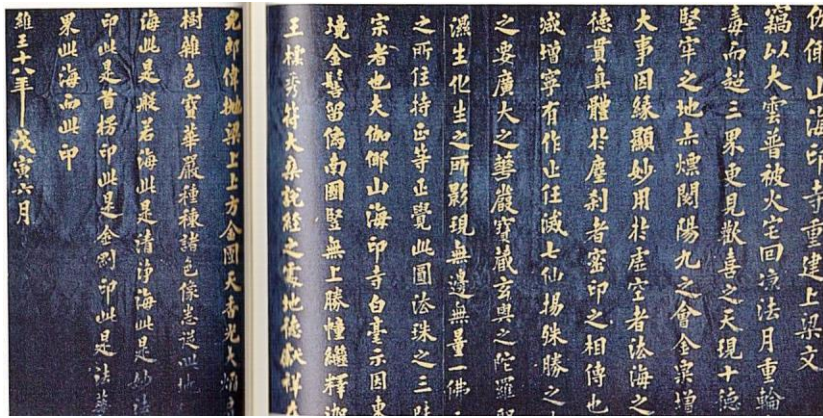 伽倻山海印寺重建上梁文
竊以大雲普被火宅回凉法月重輪
毒而超三果更見歡喜之天現十德
堅牢之地赤熛閱陽九之會金增
大事因緣顯妙用於虛空者法海之
德貫真體於塵刹者密印之相傳也
滅增寧有作止任滅七仙揚殊勝之
之要廣大之華嚴寶藏玄奧之陀羅
濕生化生之所影現無邊無量一佛
之所住持正等正覺此圓法珠之三
宗者也夫伽倻山海印寺白毫示因東
境金髻留偈南國豎無上勝幢繼釋迦
王標秀特大乘說經之處地德獻祥
兒郎偉拋梁上上方金園天香光大焰
樹雜色寶華嚴種種諸色像悉從此地
海此是般若海此是清淨海此是妙法
印此是首楞印此是金剛印此是法華
果此海而此印
維王十八年戊寅六月